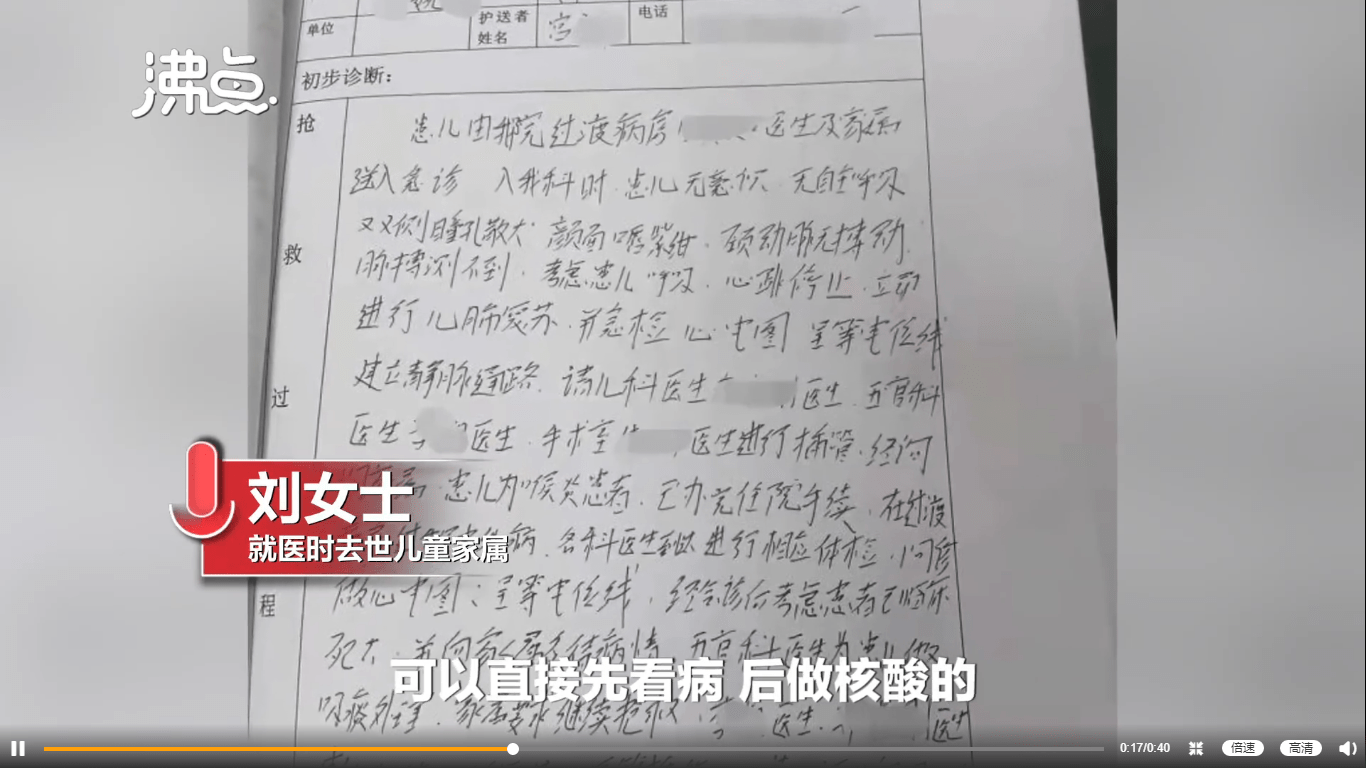 沸点
单位
护送者
姓名
宫
电话
初步诊断：
抢救过程
患儿由我院过渡病房 医生及家属
送入急诊 入我科时.患儿无意识.无自主呼吸
双侧瞳孔散大 颜面口唇紫绀.颈动脉无搏动.
脉搏测不到.考虑患儿呼吸.心跳停止.立即
进行心肺复苏.并急检心电图 呈等电位线
建立静脉通路.请儿科医生 医生.五官科
医生 医生.手术室 医生进行插管.经询
患儿为喉炎患者.已办完住院手续.在过渡
病.各科医生到此进行相应体检.
做心电图:呈等电位线.经会诊后考虑患者已临床
死亡.并向家属交待病情.五官科医生为患儿做
吸痰处理.家属要求继续抢救. 医生. 医生
刘女士
就医时去世儿童家属
可以直接先看病 后做核酸的
0:17/0:40
倍速
高清